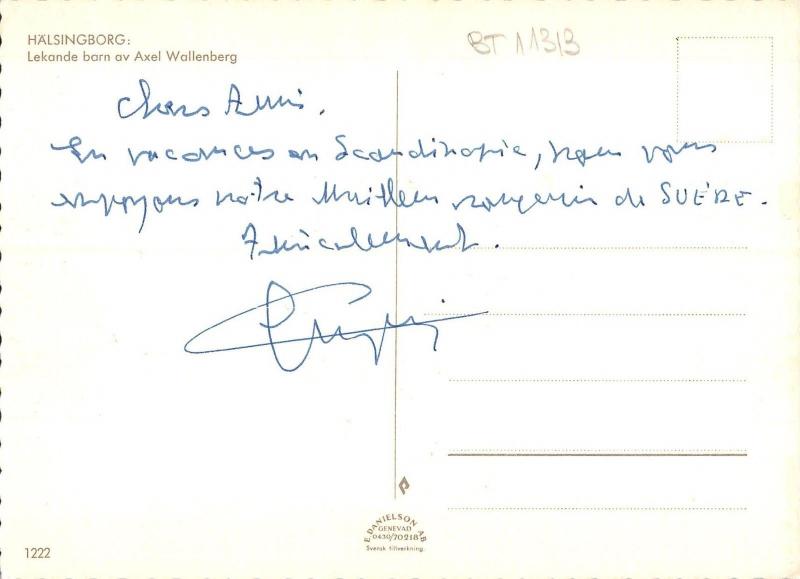 HÄLSINGBORG:
Lekande barn av Axel Wallenberg
BT 11313
Chers Amis.
En vacances en Scandinavie, nous vous
envoyons notre meilleur souvenir de SUÈDE.
Amicalement.
E. DANIELSON AB
GENEVAD
0430/70218
Svensk tillverkning.
1222